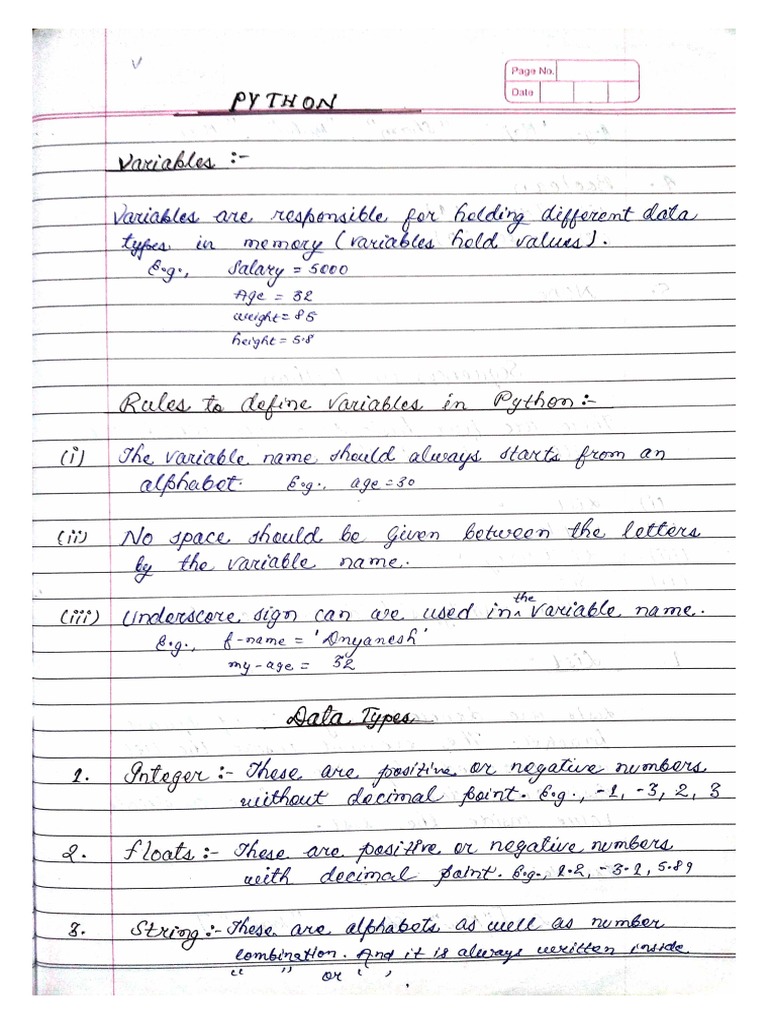 Page No.
Date
PYTHON
Variables :-
Variables are responsible for holding different data
types in memory (variables hold values).
E.g., Salary = 5000
Age = 32
weight = 85
height = 5.8
Rules to define variables in Python :-
(i) The variable name should always starts from an
alphabet. E.g., age = 30
(ii) No space should be given between the letters
by the variable name.
(iii) Underscore sign can we used in the variable name.
E.g., f-name = 'Dnyanesh'
my-age = 32
Data Types
1. Integer :- These are positive or negative numbers
without decimal point. E.g., -1, -3, 2, 3
2. Floats :- These are positive or negative numbers
with decimal point. E.g., 1.2, -3.1, 5.89
3. String :- These are alphabets as well as number
combination. And it is always written inside
“ ” or ‘ ’